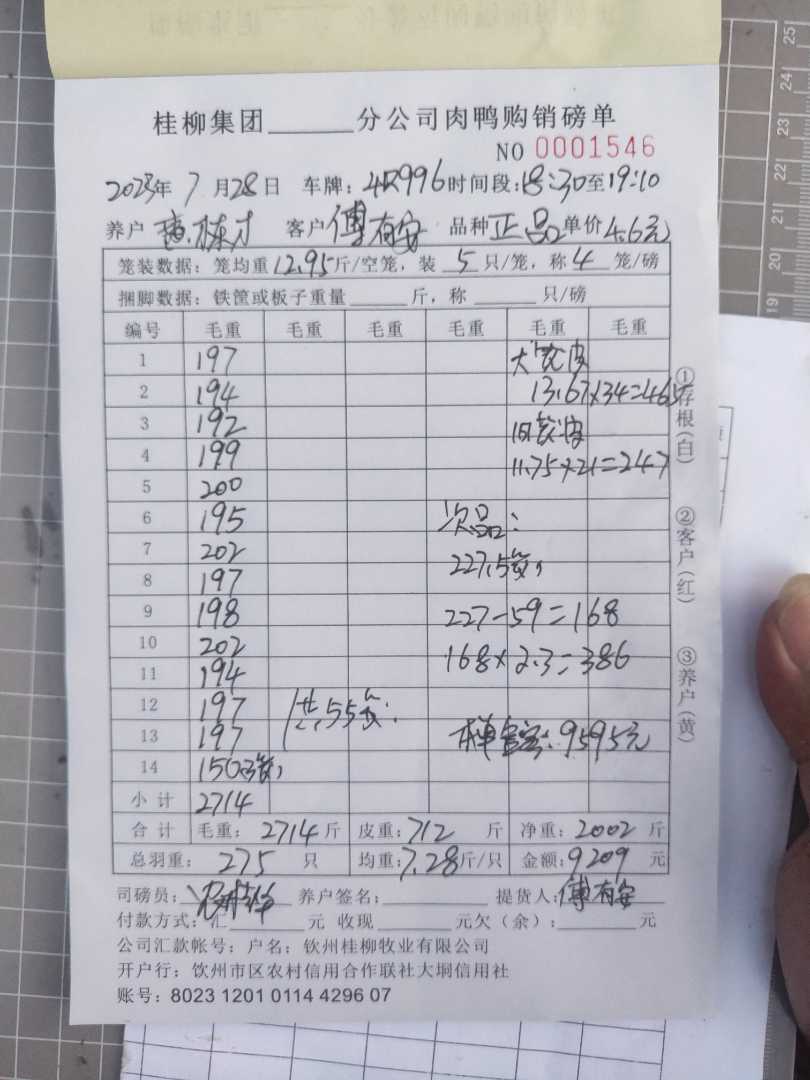 桂柳集团______分公司肉鸭购销磅单
NO 0001546
2023年 7月28日 车牌: 4R996 时间段:18:30至19:10
养户 黄栋才 客户 傅有安 品种 正品 单价 4.6元
笼装数据: 笼均重12.95斤/空笼, 装 5 只/笼, 称 4 笼/磅
捆脚数据: 铁筐或板子重量______斤, 称______只/磅
编号 毛重 毛重 毛重 毛重 毛重 毛重
1 197
2 194 13.67×34=465
3 192
4 199 11.75×21=247
5 200
6 195 次品:
7 202 227.5
8 197
9 198 227-59=168
10 202 168×2.3=386
11 194
12 197 共55
13 197 9595元
14 150.3
小计 2714
合计 毛重: 2714斤 皮重: 712 斤 净重: 2002 斤
总羽重: 275 只 均重: 7.28斤/只 金额: 9209 元
司磅员: 养户签名:______ 提货人: 傅有安
付款方式: 汇______元 收现______元欠(余):______元
公司汇款帐号: 户名: 钦州桂柳牧业有限公司
开户行: 钦州市区农村信用合作联社大垌信用社
账号: 8023 1201 0114 4296 07
①存根(白)
②客户(红)
③养户(黄)
19 20 21 22 23 24 25